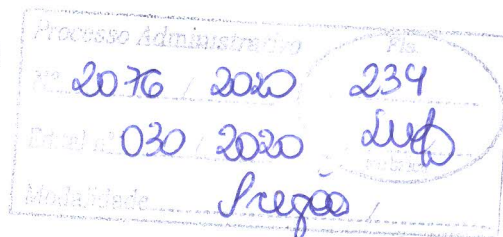 Processo Administrativo Fls.
Nº 2076 / 2020 234
Edital nº 030 / 2020
Modalidade Pregão /